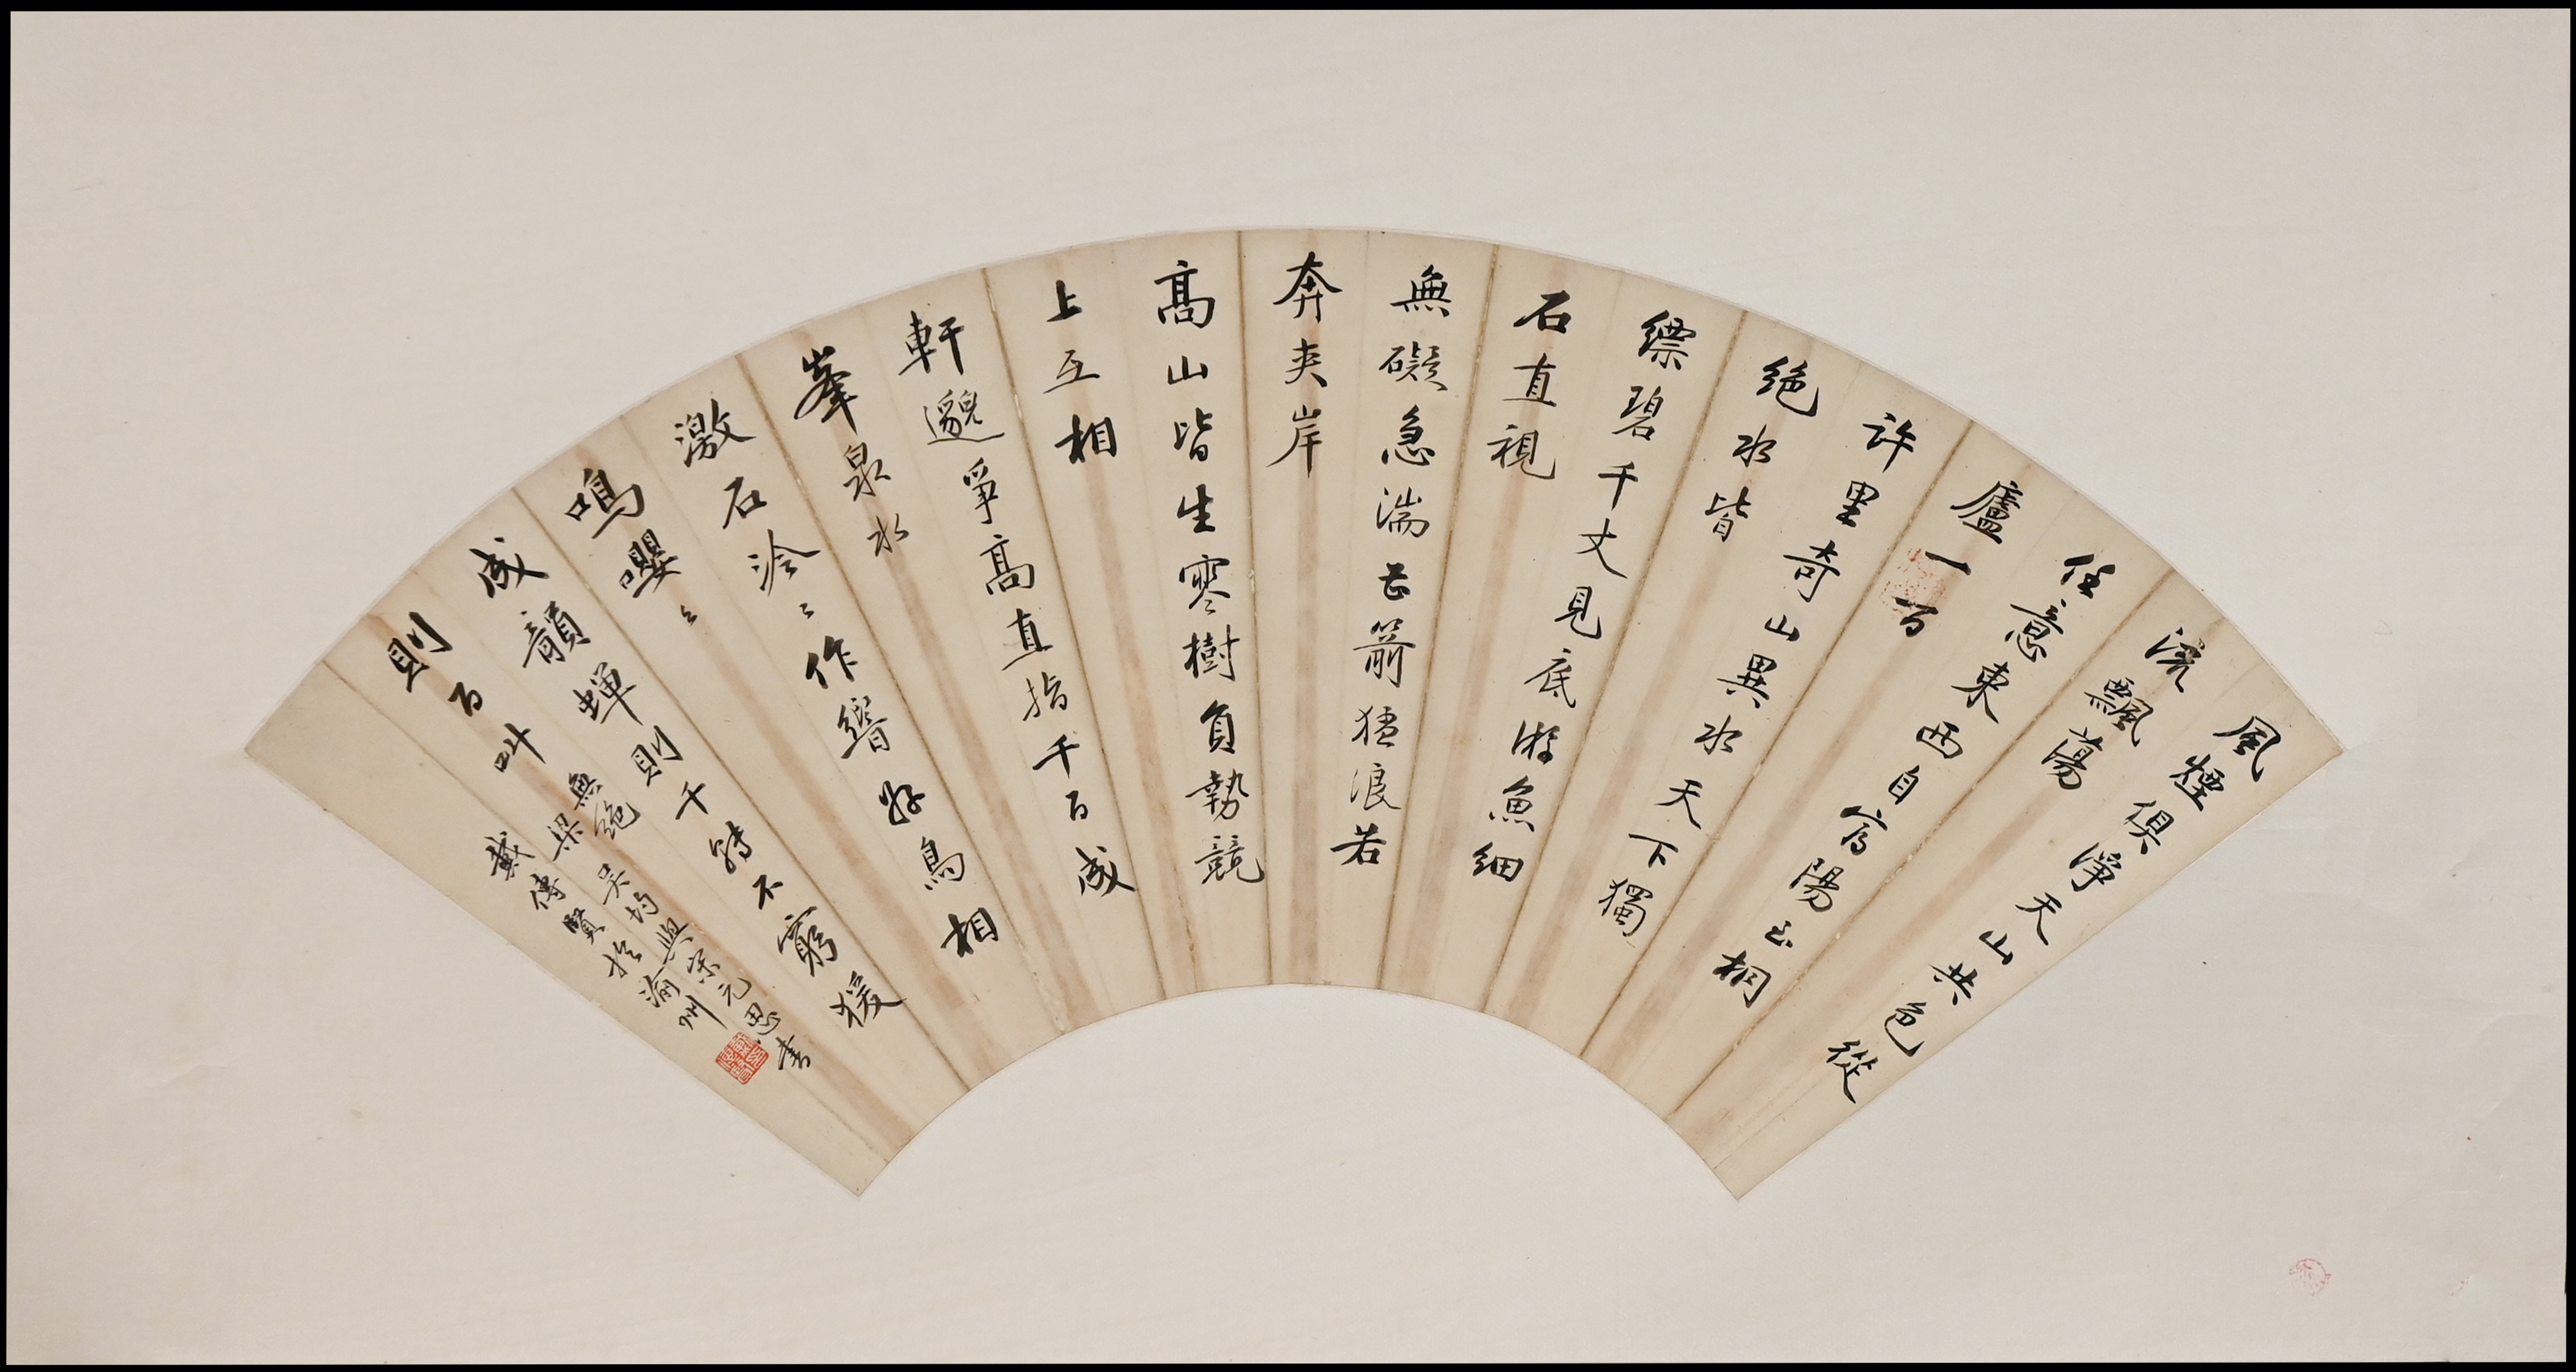 風煙俱淨天山共色從
流飄蕩
任意東西自富陽至桐
廬一百
許里奇山異水天下獨
絕水皆
縹碧千丈見底游魚細
石直視
無礙急湍甚箭猛浪若
奔夾岸
高山皆生寒樹負勢競
上互相
軒邈爭高直指千百成
峯泉水
激石泠〻作響好鳥相
鳴嚶〻
成韻蟬則千轉不窮猨
則百叫無絕
梁吳均與宋元思書
戴傳賢於渝州